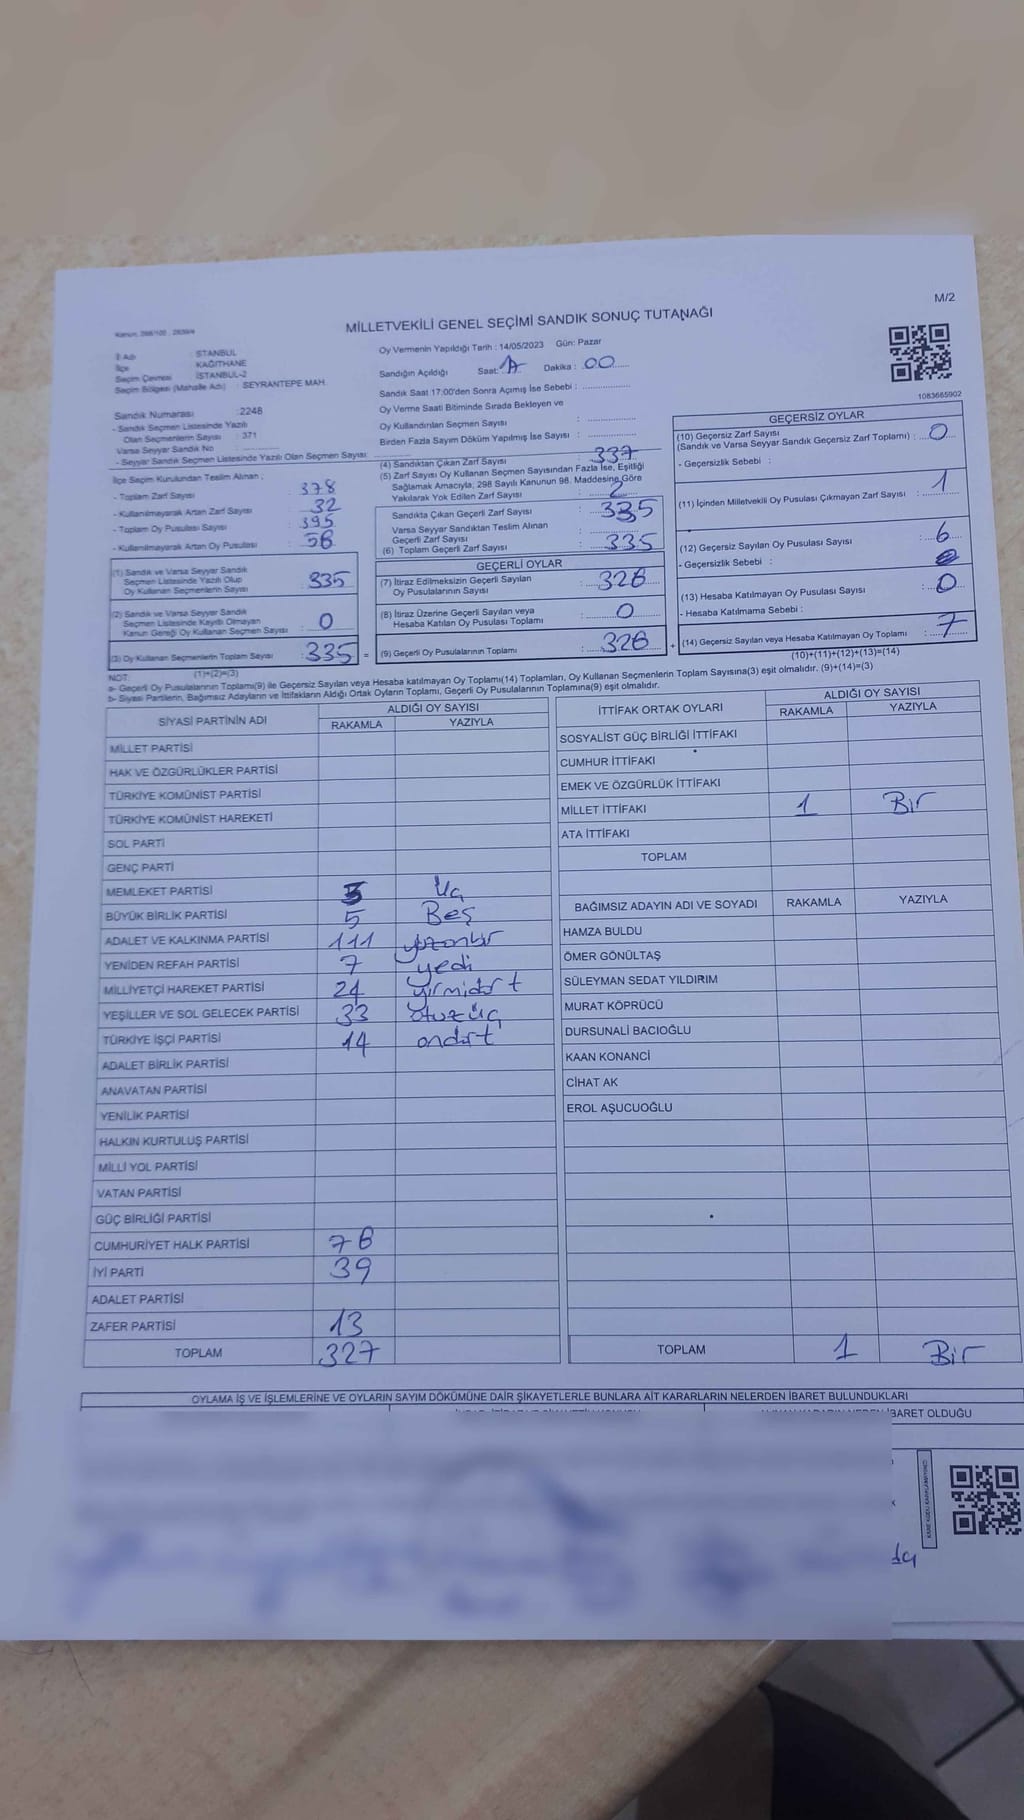 M/2
MİLLETVEKİLİ GENEL SEÇİMİ SANDIK SONUÇ TUTANAĞI
İl Adı : İSTANBUL
İlçe KAĞITHANE
Seçim Çevresi İSTANBUL-2
Seçim Bölgesi (Mahalle Adı) : SEYRANTEPE MAH.
Oy Vermenin Yapıldığı Tarih : 14/05/2023 Gün: Pazar
Sandığın Açıldığı Saat: Dakika : 00
Sandık Saat 17:00'den Sonra Açımış İse Sebebi :
Oy Verme Saati Bitiminde Sırada Bekleyen ve
Oy Kullandırılan Seçmen Sayısı :
Birden Fazla Sayım Döküm Yapılmış İse Sayısı :
1083665902
Sandık Numarası : 2248
- Sandık Seçmen Listesinde Yazılı
Olan Seçmenlerin Sayısı : 371
Varsa Seyyar Sandık No :
- Seyyar Sandık Seçmen Listesinde Yazılı Olan Seçmen Sayısı:
İlçe Seçim Kurulundan Teslim Alınan ;
- Toplam Zarf Sayısı : 378
- Kullanılmayarak Artan Zarf Sayısı : 32
- Toplam Oy Pusulası Sayısı : 395
- Kullanılmayarak Artan Oy Pusulası : 58
(1) Sandık ve Varsa Seyyar Sandık
Seçmen Listesinde Yazılı Olup
Oy Kullanan Seçmenlerin Sayısı : 335
(2) Sandık ve Varsa Seyyar Sandık
Seçmen Listesinde Kayıtlı Olmayan
Kanun Gereği Oy Kullanan Seçmen Sayısı : 0
(3) Oy Kullanan Seçmenlerin Toplam Sayısı : 335 =
(1)+(2)=(3)
(4) Sandıktan Çıkan Zarf Sayısı : 337
(5) Zarf Sayısı Oy Kullanan Seçmen Sayısından Fazla İse, Eşitliği
Sağlamak Amacıyla; 298 Sayılı Kanunun 98. Maddesine Göre
Yakılarak Yok Edilen Zarf Sayısı : 2
Sandıkta Çıkan Geçerli Zarf Sayısı : 335
Varsa Seyyar Sandıktan Teslim Alınan
Geçerli Zarf Sayısı :
(6) Toplam Geçerli Zarf Sayısı : 335
GEÇERLİ OYLAR
(7) İtiraz Edilmeksizin Geçerli Sayılan
Oy Pusulalarının Sayısı : 328
(8) İtiraz Üzerine Geçerli Sayılan veya
Hesaba Katılan Oy Pusulası Toplamı : 0
(9) Geçerli Oy Pusulalarının Toplamı : 328 +
GEÇERSİZ OYLAR
(10) Geçersiz Zarf Sayısı
(Sandık ve Varsa Seyyar Sandık Geçersiz Zarf Toplamı) : 0
- Geçersizlik Sebebi :
(11) İçinden Milletvekili Oy Pusulası Çıkmayan Zarf Sayısı : 1
(12) Geçersiz Sayılan Oy Pusulası Sayısı : 6
- Geçersizlik Sebebi :
(13) Hesaba Katılmayan Oy Pusulası Sayısı : 0
- Hesaba Katılmama Sebebi :
(14) Geçersiz Sayılan veya Hesaba Katılmayan Oy Toplamı : 7
(10)+(11)+(12)+(13)=(14)
NOT:
a- Geçerli Oy Pusulalarının Toplamı(9) ile Geçersiz Sayılan veya Hesaba katılmayan Oy Toplamı(14) Toplamları, Oy Kullanan Seçmenlerin Toplam Sayısına(3) eşit olmalıdır. (9)+(14)=(3)
b- Siyasi Partilerin, Bağımsız Adayların ve İttifakların Aldığı Ortak Oyların Toplamı, Geçerli Oy Pusulalarının Toplamına(9) eşit olmalıdır.
SİYASİ PARTİNİN ADI ALDIĞI OY SAYISI
RAKAMLA YAZIYLA
MİLLET PARTİSİ
HAK VE ÖZGÜRLÜKLER PARTİSİ
TÜRKİYE KOMÜNİST PARTİSİ
TÜRKİYE KOMÜNİST HAREKETİ
SOL PARTİ
GENÇ PARTİ
MEMLEKET PARTİSİ 3 Üç
BÜYÜK BİRLİK PARTİSİ 5 Beş
ADALET VE KALKINMA PARTİSİ 111 yüzonbir
YENİDEN REFAH PARTİSİ 7 yedi
MİLLİYETÇİ HAREKET PARTİSİ 24 yirmidört
YEŞİLLER VE SOL GELECEK PARTİSİ 33 otuzüç
TÜRKİYE İŞÇİ PARTİSİ 14 ondört
ADALET BİRLİK PARTİSİ
ANAVATAN PARTİSİ
YENİLİK PARTİSİ
HALKIN KURTULUŞ PARTİSİ
MİLLİ YOL PARTİSİ
VATAN PARTİSİ
GÜÇ BİRLİĞİ PARTİSİ
CUMHURİYET HALK PARTİSİ 78
İYİ PARTİ 39
ADALET PARTİSİ
ZAFER PARTİSİ 13
TOPLAM 327
İTTİFAK ORTAK OYLARI ALDIĞI OY SAYISI
RAKAMLA YAZIYLA
SOSYALİST GÜÇ BİRLİĞİ İTTİFAKI
CUMHUR İTTİFAKI
EMEK VE ÖZGÜRLÜK İTTİFAKI
MİLLET İTTİFAKI 1 Bir
ATA İTTİFAKI
TOPLAM
BAĞIMSIZ ADAYIN ADI VE SOYADI RAKAMLA YAZIYLA
HAMZA BULDU
ÖMER GÖNÜLTAŞ
SÜLEYMAN SEDAT YILDIRIM
MURAT KÖPRÜCÜ
DURSUNALİ BACIOĞLU
KAAN KONANCİ
CİHAT AK
EROL AŞUCUOĞLU
TOPLAM 1 Bir
OYLAMA İŞ VE İŞLEMLERİNE VE OYLARIN SAYIM DÖKÜMÜNE DAİR ŞİKAYETLERLE BUNLARA AİT KARARLARIN NELERDEN İBARET BULUNDUKLARI
İBARET OLDUĞU